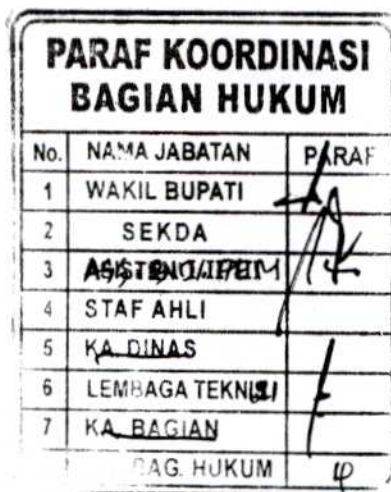 PARAF KOORDINASI
BAGIAN HUKUM
No. NAMA JABATAN PARAF
1 WAKIL BUPATI
2 SEKDA
3
4 STAF AHLI
5 KA. DINAS
6 LEMBAGA TEKNIS
7 KA. BAGIAN
BAG. HUKUM